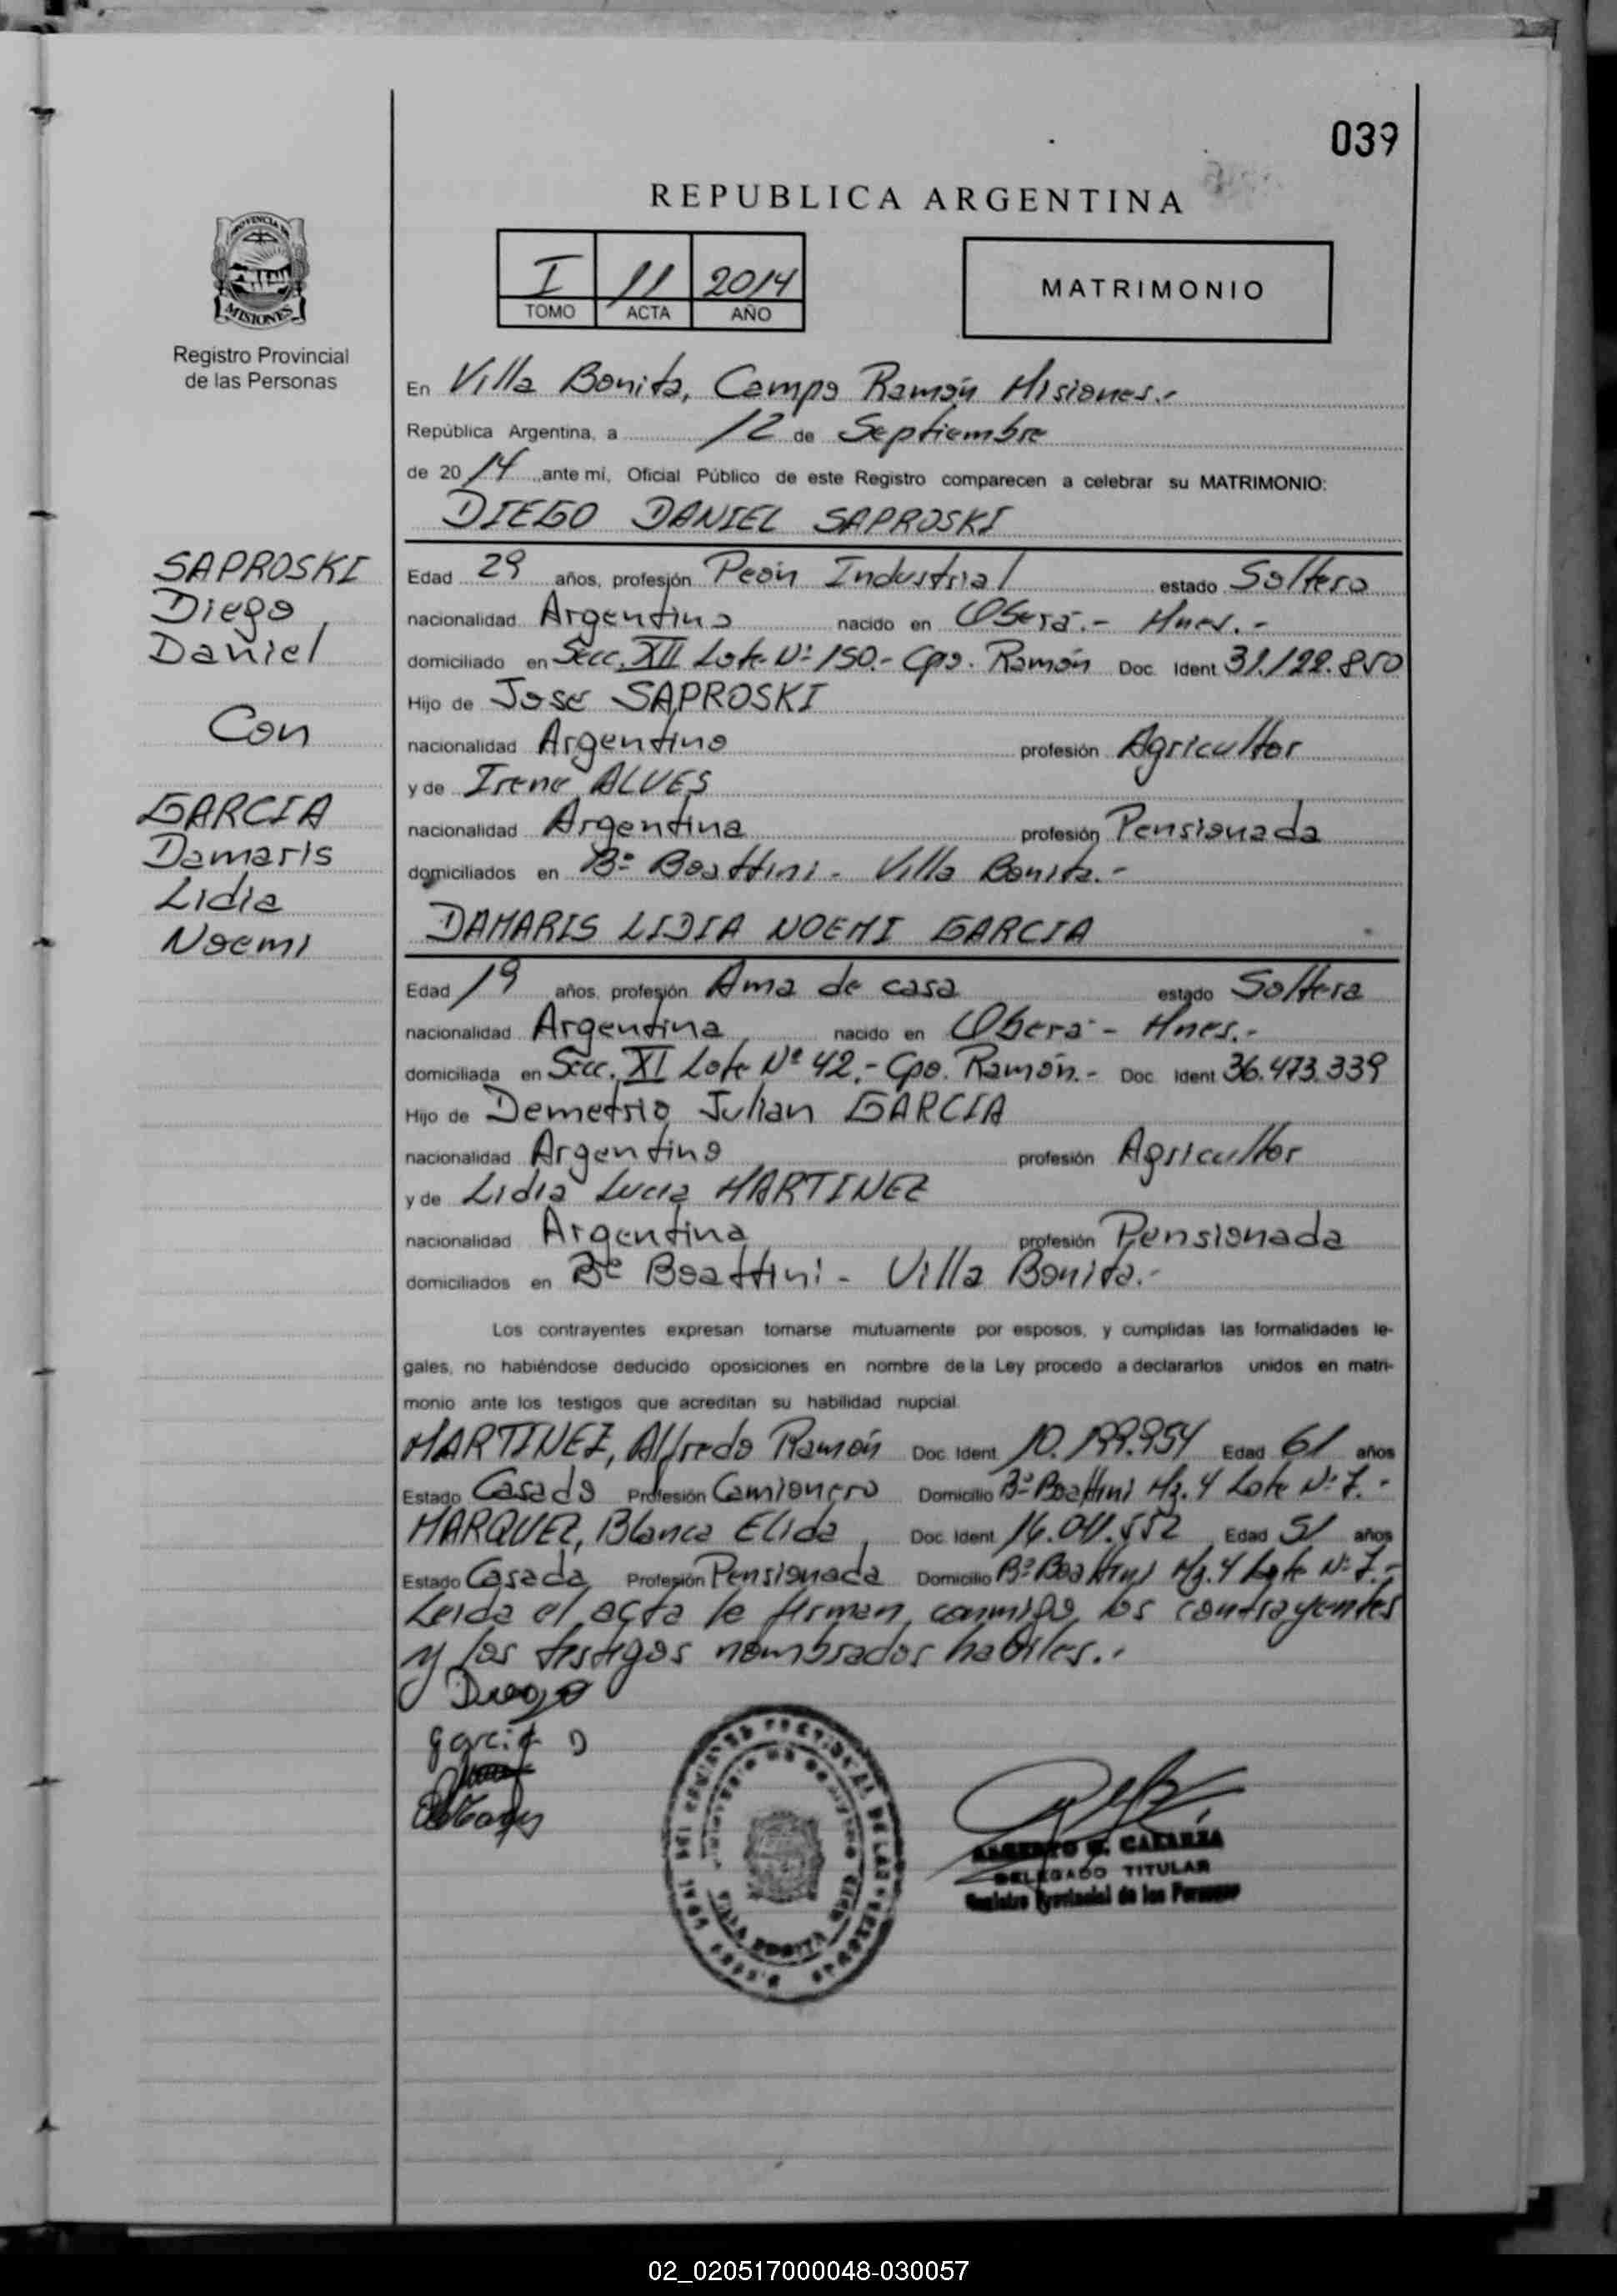 039
REPUBLICA ARGENTINA
PROVINCIA DE
MISIONES
Registro Provincial
de las Personas
I 11 2014
TOMO ACTA AÑO
MATRIMONIO
En Villa Bonita, Campo Ramón Misiones.-
República Argentina, a 12 de Septiembre
de 20 14 ante mi, Oficial Público de este Registro comparecen a celebrar su MATRIMONIO:
DIEGO DANIEL SAPROSKI
SAPROSKI
Diego
Daniel
Con
GARCIA
Damaris
Lidia
Noemi
Edad 29 años, profesión Peón Industrial estado Soltero
nacionalidad Argentino nacido en Oberá.- Mnes.-
domiciliado en Secc. XII Lote Nº 150.- Cpo. Ramón Doc. Ident 31.122.850
Hijo de José SAPROSKI
nacionalidad Argentino profesión Agricultor
y de Irene ALVES
nacionalidad Argentina profesión Pensionada
domiciliados en Bº Boattini - Villa Bonita.-
DAMARIS LIDIA NOEMI GARCIA
Edad 19 años, profesión Ama de casa estado Soltera
nacionalidad Argentina nacido en Oberá - Mnes.-
domiciliada en Secc. XI Lote Nº 42.- Cpo. Ramón.- Doc. Ident 36.473.339
Hijo de Demetrio Julian GARCIA
nacionalidad Argentino profesión Agricultor
y de Lidia Lucia MARTINEZ
nacionalidad Argentina profesión Pensionada
domiciliados en Bº Boattini - Villa Bonita.-
Los contrayentes expresan tomarse mutuamente por esposos, y cumplidas las formalidades le-
gales, no habiéndose deducido oposiciones en nombre de la Ley procedo a declararlos unidos en matri-
monio ante los testigos que acreditan su habilidad nupcial.
MARTINEZ, Alfredo Ramón Doc. Ident. 10.199.954 Edad 61 años
Estado Casado Profesión Camionero Domicilio Bº Boattini Mz. 4 Lote Nº 7.-
MARQUEZ, Blanca Elida Doc. Ident. Edad 51 años
Estado Casada Profesión Pensionada Domicilio Bº Boattini Mz. 4 Lote Nº 7.-
Leida el acta la firman conmigo los contrayentes
y los testigos nombrados habiles.-
Diego
garcia D
VILLA BONITA
DELEGADO TITULAR
Registro Provincial de las Personas
02_020517000048-030057